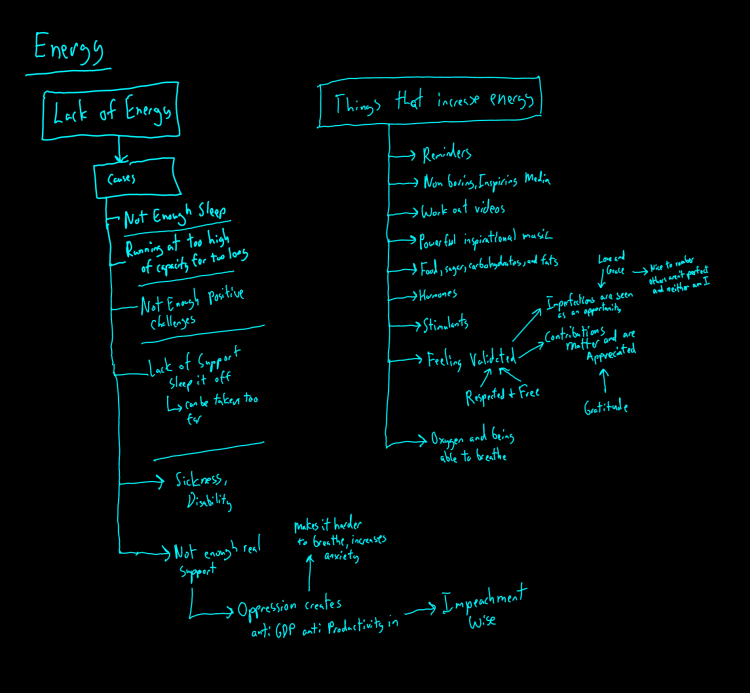 Energy
Lack of Energy
Causes
Not Enough Sleep
Running at too high
of capacity for too long
Not Enough positive
challenges
Lack of Support
Sleep it off
can be taken too
far
Sickness,
Disability
Not enough real
Support
Oppression creates
anti GDP anti Productivity in
makes it harder
to breathe, increases
anxiety
Impeachment
Wise
Things that increase energy
Reminders
Non boring, Inspiring Media
Work out videos
Powerful inspirational music
Food, sugar, carbohydrates, and fats
Hormones
Stimulants
Feeling Validated
Respected + Free
Imperfections are seen
as an opportunity
Love and
Grace
Nice to
others aren't perfect
and neither am I
Contributions
matter and are
Appreciated
Gratitude
Oxygen and being
able to breathe